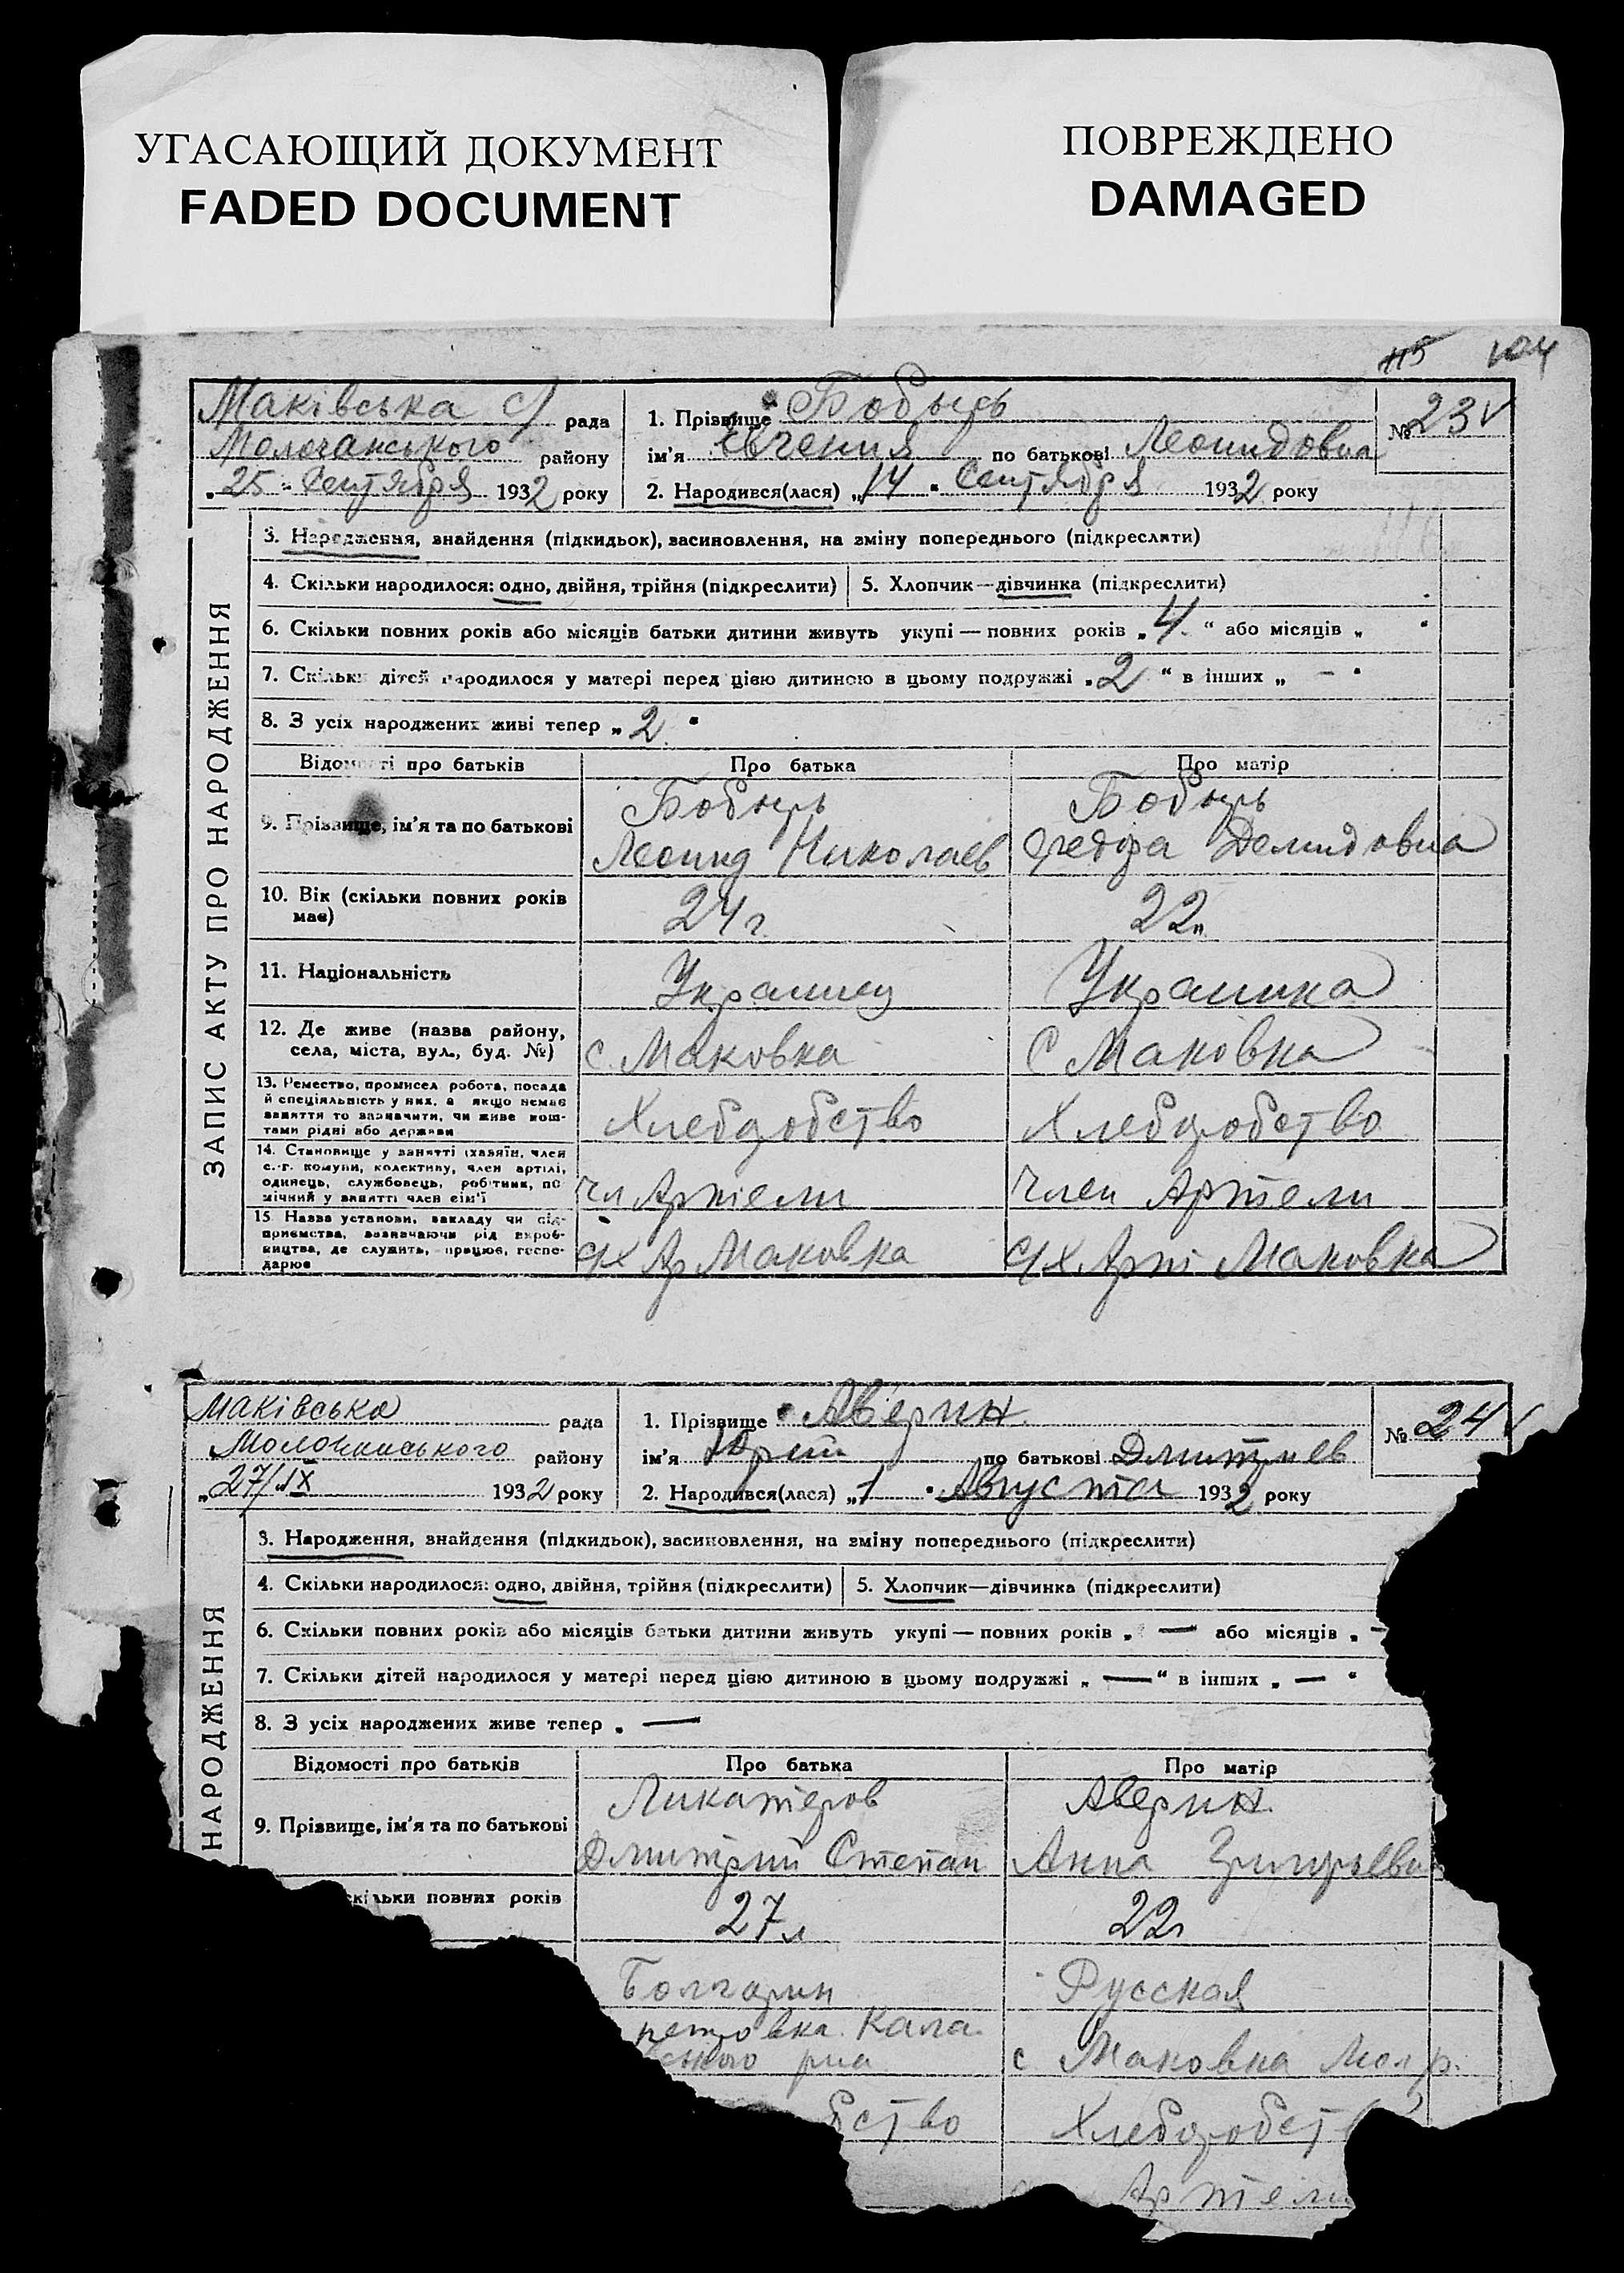 УГАСАЮЩИЙ ДОКУМЕНТ
FADED DOCUMENT
ПОВРЕЖДЕНО
DAMAGED
115 104
Маківська с/ рада
Молочанського району
„25" Сентября 1932 року
1. Прізвище Бобырь
ім'я Євгения по батькові Леонидовна
2. Народився(лася) „14" Сентября 1932 року
№ 23 v
ЗАПИС АКТУ ПРО НАРОДЖЕННЯ
3. Народження, знайдення (підкидьок), засиновлення, на зміну попереднього (підкреслити)
4. Скільки народилося: одно, двійня, трійня (підкреслити) 5. Хлопчик—дівчинка (підкреслити)
6. Скільки повних років або місяців батьки дитини живуть укупі — повних років „4" або місяців „ "
7. Скільки дітей народилося у матері перед цією дитиною в цьому подружжі „2" в інших „ – "
8. З усіх народжених живі тепер „2"
Відомості про батьків Про батька Про матір
9. Прізвище, ім'я та по батькові
Бобырь
Леонид Николаев
Бобырь
Федора Демидовна
10. Вік (скільки повних років має) 24 г. 22 "
11. Національність Украинец Украинка
12. Де живе (назва району, села, міста, вул., буд. №) с. Маковка С Маковка
13. Ремество, промисел робота, посада
й спеціяльність у них, а якщо немає
заняття то зазначити, чи живе кош-
тами рідні або держави
Хлеборобство Хлеборобство
14. Становище у занятті (хазяїн, член
с.-г. комуни, колективу, член артілі,
одинець, службовець, робітник, по
мічний у занятті член сім'ї
Чл Артели Член Артели
15. Назва установи, закладу чи під-
приємства, зазначаючи рід вироб-
ництва, де служить, працює, госпо-
дарює
с/х Ар Маковка с/х Арт Маковка
Маківська рада
Молочанського району
„27/IX 1932 року
1. Прізвище Аверин
ім'я Юрий по батькові Дмитриев
2. Народився(лася) „1" Августа 1932 року
№ 24 v
НАРОДЖЕННЯ
3. Народження, знайдення (підкидьок), засиновлення, на зміну попереднього (підкреслити)
4. Скільки народилося: одно, двійня, трійня (підкреслити) 5. Хлопчик—дівчинка (підкреслити)
6. Скільки повних років або місяців батьки дитини живуть укупі — повних років „ — або місяців „ –
7. Скільки дітей народилося у матері перед цією дитиною в цьому подружжі „ — " в інших „ — "
8. З усіх народжених живе тепер „ —
Відомості про батьків Про батька Про матір
9. Прізвище, ім'я та по батькові
Дмитрий Степан
Аверин
Анна Григорьевн
скільки повних років 27 л 22 г
Болгарин Русская
ретровка Кала
ського р-на
с Маковка Мол р.
бство Хлеборобст
Артели